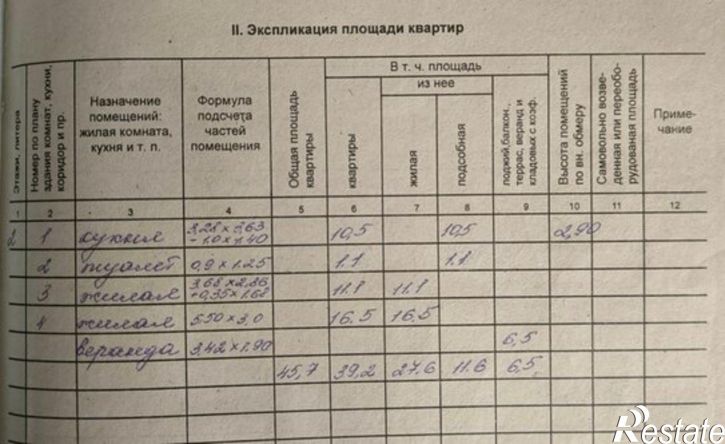 II. Экспликация площади квартир
Этажи, литера
Номер по плану
здания комнат, кухни,
коридор и пр.
Назначение
помещений:
жилая комната,
кухня и т. п.
Формула
подсчета
частей
помещения
Общая площадь
квартиры
В т. ч. площадь
квартиры
из нее
жилая
подсобная
лоджий,балкон.,
террас, веранд и
кладовых с коэф.
Высота помещений
по вн. обмеру
Самовольно возве-
денная или переобо-
рудованая площадь
Приме-
чание
1 2 3 4 5 6 7 8 9 10 11 12
2 1 кухня 3,28 × 3,63 10,5 10,5 2,90
- 1.0 × 1,40
2 туалет 0,9 × 1.25 1.1 1.1
3 жилая 3,68 × 2,86 11.1 11,1
+0,35×1,68
4 жилая 5,50 × 3,0 16,5 16,5
веранда 3,42 × 1.90 6,5
45,7 39,2 27,6 11.6 6,5
Restate